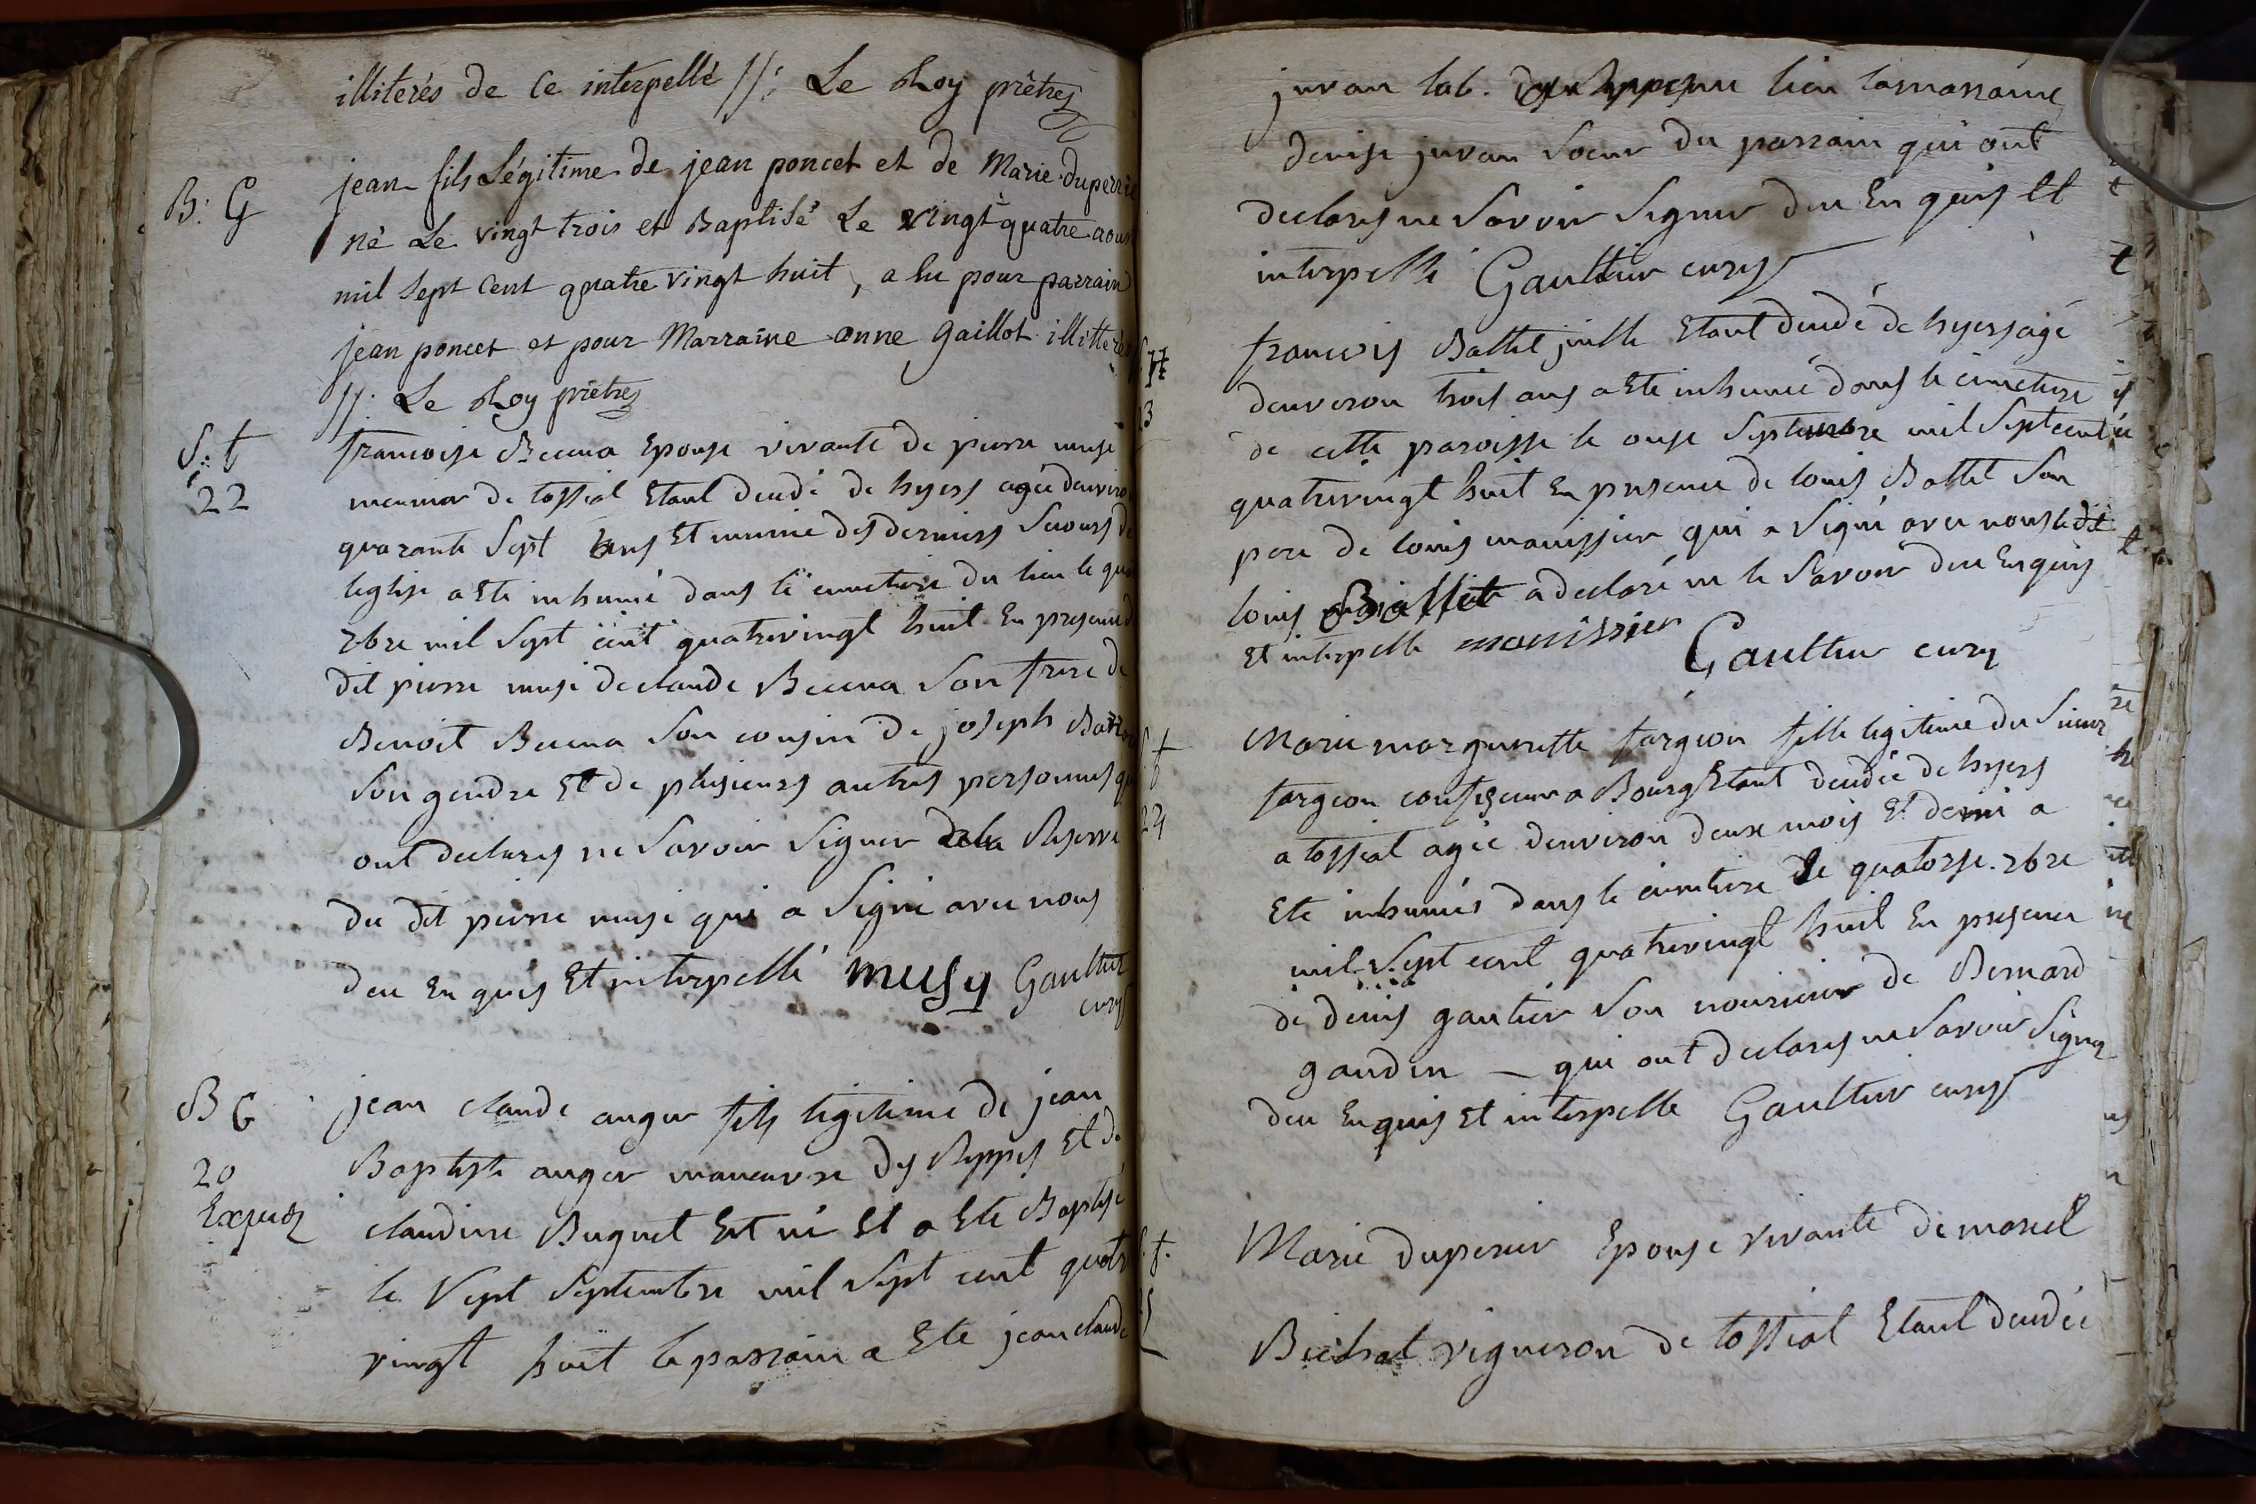 illiterés de Ce interpellé //: Le Roy prêtre
B: G
jean fils Légitime de jean poncet et de Marie duperrie
né Le vingt trois et Baptisé Le vingt quatre aou
mil Sept Cent quatre vingt huit, a Eu pour parrain
jean poncet et pour Marraine anne gaillot illitte
//: Le Roy prêtre
S: t
22
francoise Becuna Epouse vivante de pierre
meunier de tossiat Etant decedé de hyers agée denviro
quarante Sept ans Et munie des derniers Secours d
leglise a Ete inhumé dans le cimetiere du lieu le
7bre mil Sept cent quatrevingt huit En presence d
dit pierre musi de claude Becuna Son frere de
Benoit Becuna Son cousin de joseph
Son gendre Et de plusieurs autres personnes qu
ont declares ne Savoir Signer de la Reserve
du dit pierre musi qui a Signé avec nous
deu En quis Et interpellé musy Gaultier
curé
B G
20
jean claude auger fils legitime de jean
Baptiste auger maneuvre des Rippes Et de
claudine Buguet Est né Et a Ete Baptisé
le Sept Septembre mil Sept cent quatr
vingt huit le parrain a Ete jean claude
juvan lab. lieu la marraine
denise juvan Soeur du parrain qui ont
declares ne Savoir Signer deu En quis Et
interpellé Gaultier curé
francois Battet Etant decedé de hyers agé
denviron trois ans a Ete inhumé dans le cimetiere
de cette paroisse le onse Septembre mil Sept cent
quatrevingt huit En presence de louis Battet Son
pere de louis manissier qui a Signé avec nous le dit
louis Battet a declaré ne le Savoir deu Enquis
Et interpelle manissier Gaultier curé
t
24
Marie margueritte fargeon fille legitime du Sieur
fargeon confiseur a Bourg Etant decedée de hyers
a tossiat agée denviron deux mois Et demi a
Ete inhumée dans le cimetiere le quatorse 7bre
mil Sept cent quatrevingt huit En presence
de denis gautier Son nouricier de Bernard
gaudin – qui ont declares ne Savoir Signer
deu Enquis Et interpelle Gaultier curé
t.
Marie duperier Epouse vivante de
Bichat vigneron de tossiat Etant decedée